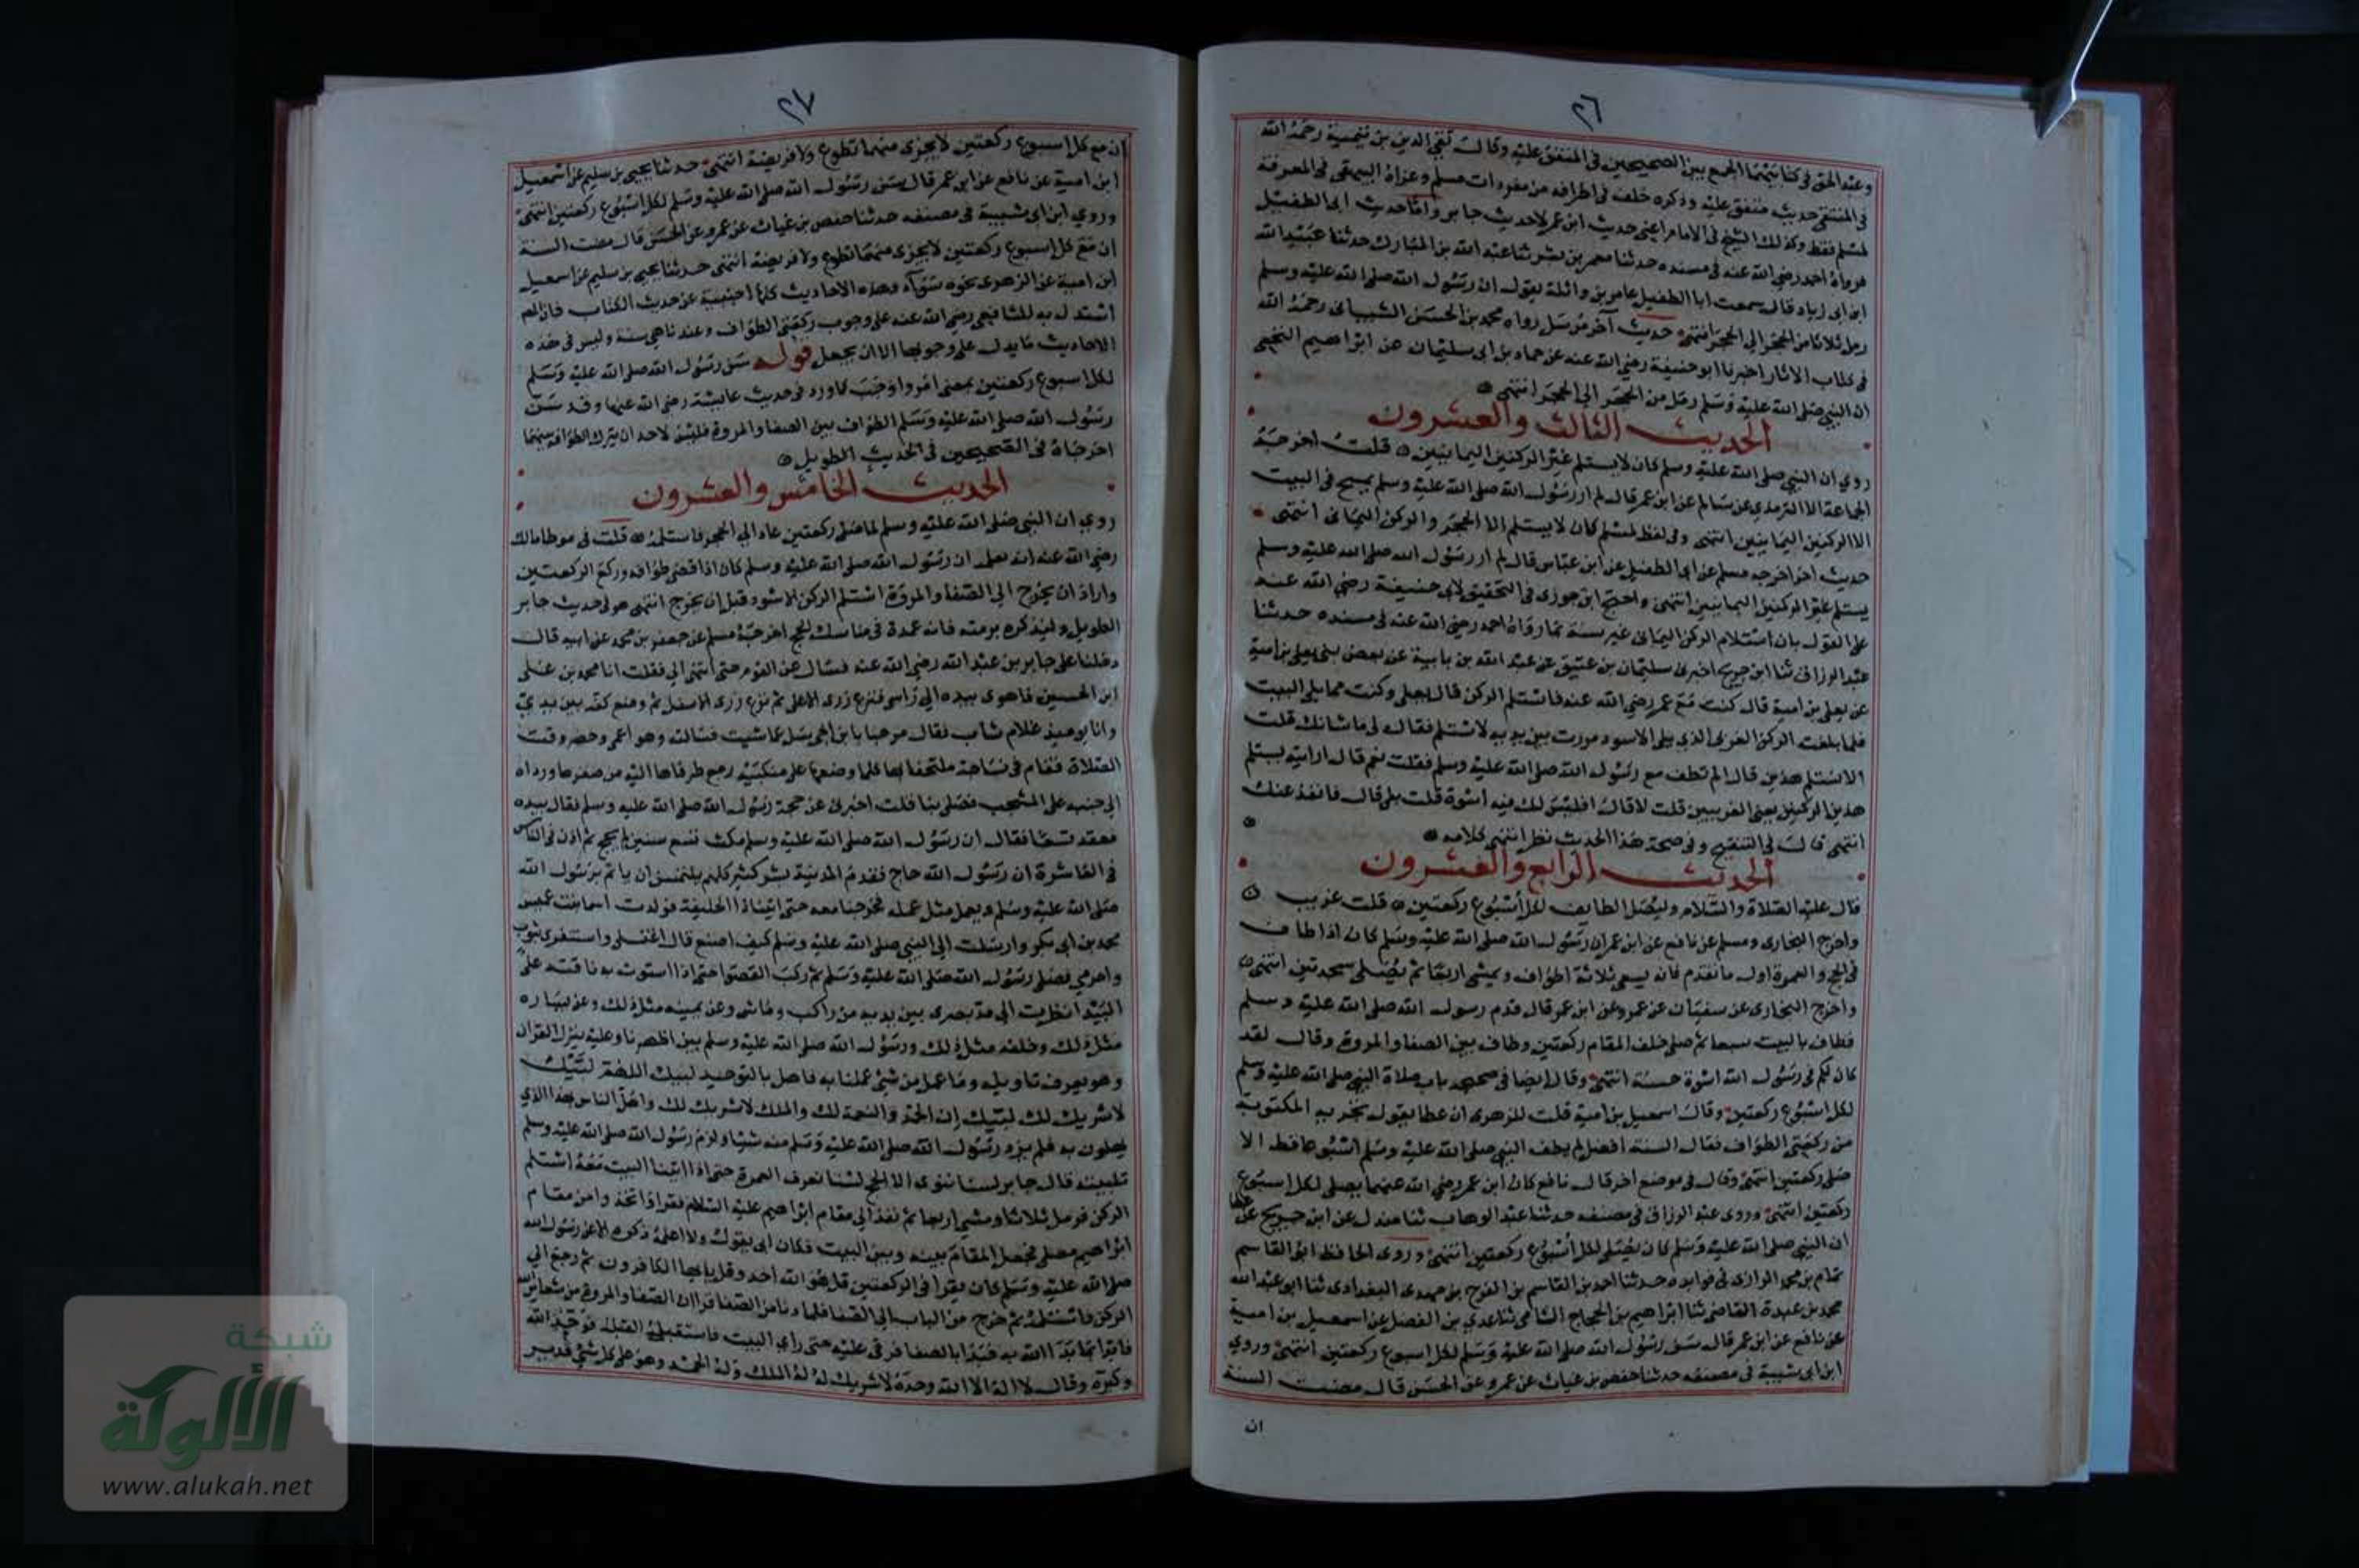 ٢٦
وعبد الحق فى كتابيهما الجمع بين الصحيحين فى المتفق عليه وقال تقي الدين بن تيمية رحمه الله
فى المنتقى حديث متفق عليه وذكره خلف فى اطرافه من مفردات مسلم وعزاه البيهقى فى المعرفة
لمسلم فقط وكذلك الشيخ فى الامام اعنى حديث ابن عمر لاحديث جابر واما حديث ابى الطفيل
فرواه احمد رضي الله عنه فى مسنده حدثنا معمر بن بشر ثنا عبد الله بن المبارك حدثنا عبيد الله
ابن ابى زياد قال سمعت ابا الطفيل عامر بن واثلة يقول ان رسول الله صلى الله عليه وسلم
رمل ثلاثا من الحجر الى الحجر انتهى حديث آخر مرسل رواه محمد بن الحسن الشيبانى رحمه الله
فى كتاب الاثار اخبرنا ابو حنيفة رضي الله عنه عن حماد بن ابى سليمان عن ابراهيم النخعى
ان النبي صلى الله عليه وسلم رمل من الحجر الى الحجر انتهى
الحديث الثالث والعشرون
روي ان النبى صلى الله عليه وسلم كان لايستلم غير الركنين اليمانيين قلت اخرجه
الجماعة الا الترمذي عن سالم عن ابن عمر قال لم ار رسول الله صلى الله عليه وسلم يمسح فى البيت
الا الركنين اليمانيين انتهى وفى لفظ لمسلم كان لايستلم الا الحجر والركن اليمانى انتهى
حديث اخر اخرجه مسلم عن ابى الطفيل عن ابن عباس قال لم ار رسول الله صلى الله عليه وسلم
يستلم غير الركنين اليمانيين انتهى واحتج ابن جوزى فى التحقيق لابى حنيفة رضي الله عنه
على القول بان استلام الركن اليمانى غير سنة بما رواه احمد رضي الله عنه فى مسنده حدثنا
عبد الرزاق ثنا ابن جريج اخبرنى سليمان بن عتيق عن عبد الله بن بابية عن بعض بنى يعلى بن امية
عن يعلى بن امية قال كنت مع عمر رضي الله عنه فاستلم الركن قال يعلى وكنت مما يلى البيت
فلما بلغت الركن الغربى الذي يلى الاسود مررت بين يديه لاستلم فقال لى ماشانك قلت
الاتستلم هذين قال الم تطف مع رسول الله صلى الله عليه وسلم فقلت نعم قال ارايته يستلم
هذين الركنين يعنى الغربيين قلت لا قال افليس لك فيه اسوة قلت بلى قال فانفذ عنك
انتهى قال فى التنقيح وفى صحة هذا الحديث نظر انتهى كلامه
الحديث الرابع والعشرون
قال عليه الصلاة والسلام وليصل الطايف لكل اسبوع ركعتين قلت غريب
واخرج البخارى ومسلم عن نافع عن ابن عمر ان رسول الله صلى الله عليه وسلم كان اذا طاف
فى الحج والعمرة اول مانقدم فانه يسعى ثلاثة اطواف ويمشى اربعا ثم يصلى سجدتين انتهى
واخرج البخارى عن سفيان عن عمرو عن ابن عمر قال قدم رسول الله صلى الله عليه وسلم
فطاف بالبيت سبعا ثم صلى خلف المقام ركعتين وطاف بين الصفا والمروة وقال لقد
كان لكم فى رسول الله اسوة حسنة انتهى وقال ايضا فى صحيحه باب صلاة النبي صلى الله عليه وسلم
لكل اسبوع ركعتين وقال اسمعيل بن امية قلت للزهرى ان عطا يقول تجزيه المكتوبة
من ركعتى الطواف فقال السنة افضل لم يطف النبي صلى الله عليه وسلم اسبوعا قط الا
صلى ركعتين انتهى وقال فى موضع اخر قال نافع كان ابن عمر رضي الله عنهما يصلى لكل اسبوع
ركعتين انتهى وروى عبد الرزاق فى مصنفه حدثنا عبد الوهاب ثنا مندل عن ابن جريج عن عطا
ان النبي صلى الله عليه وسلم كان يصلى لكل اسبوع ركعتين انتهى وروى الحافظ ابو القاسم
تمام بن محمد الرازى فى فوايده حدثنا احمد بن القاسم بن الفرج بن مهدى البغدادى ثنا ابو عبد الله
محمد بن عبدة القاضى ثنا ابراهيم بن الحجاج الشامى ثنا عدي بن الفضل عن اسمعيل بن امية
عن نافع عن ابن عمر قال سن رسول الله صلى الله عليه وسلم لكل اسبوع ركعتين انتهى وروي
ابن ابى شيبة فى مصنفه حدثنا حفص بن غياث عن عمرو عن الحسن قال مضت السنة
ان
٢٧
ان مع كل اسبوع ركعتين لايجزى منهما تطوع ولا فريضة انتهى حدثنا يحيى بن سليم عن اسمعيل
ابن امية عن نافع عن ابن عمر قال سن رسول الله صلى الله عليه وسلم لكل اسبوع ركعتين انتهى
وروي ابن ابى شيبة فى مصنفه حدثنا حفص بن غياث عن عمرو عن الحسن قال مضت السنة
ان مع كل اسبوع ركعتين لايجزى منهما تطوع ولا فريضة انتهى حدثنا يحيى بن سليم عن اسمعيل
ابن امية عن الزهرى نحوه سوآء وهذه الاحاديث كلها اجنبية عن حديث الكتاب فان المص
استدل به للشافعى رضي الله عنه على وجوب ركعتى الطواف وعندنا هى سنة وليس فى هذه
الاحاديث مايدل على وجوبها الا ان يجعل قوله سن رسول الله صلى الله عليه وسلم
لكل اسبوع ركعتين بمعنى امر واوجب كما ورد فى حديث عايشة رضي الله عنها وقد سن
رسول الله صلى الله عليه وسلم الطواف بين الصفا والمروة فليس لاحد ان يترك الطواف بينهما
اخرجاه فى الصحيحين فى الحديث الطويل
الحديث الخامس والعشرون
روي ان النبى صلى الله عليه وسلم لما صلى ركعتين عاد الى الحجر فاستلمه قلت فى موطا مالك
رضي الله عنه انه بلغه ان رسول الله صلى الله عليه وسلم كان اذا قضى طوافه وركع الركعتين
واراد ان يخرج الى الصفا والمروة استلم الركن الاسود قبل ان يخرج انتهى هو فى حديث جابر
الطويل ولنذكره برمته فانه عمدة فى مناسك الحج اخرجه مسلم عن جعفر بن محمد عن ابيه قال
دخلنا على جابر بن عبد الله رضي الله عنه فسال عن القوم حتى انتهى الى فقلت انا محمد بن على
ابن الحسين فاهوى بيده الى راسى فنزع زرى الاعلى ثم نزع زرى الاسفل ثم وضع كفه بين يديي
وانا يوميذ غلام شاب فقال مرحبا يا بن اخى سل عما شيت فسالته وهو اعمى وحضر وقت
الصلاة فقام فى نساجة ملتحفا بها كلما وضعها على منكبيه رجع طرفاها اليه من صغرها ورداه
الى جنبه على المشجب فصلى بنا قلت اخبرنى عن حجة رسول الله صلى الله عليه وسلم فقال بيده
فعقد تسعا فقال ان رسول الله صلى الله عليه وسلم مكث تسع سنين لم يحج ثم اذن فى الناس
فى العاشرة ان رسول الله حاج فقدم المدينة بشر كثير كلهم يلتمس ان ياتم برسول الله
صلى الله عليه وسلم ويعمل مثل عمله فخرجنا معه حتى اتينا ذا الحليفة فولدت اسما بنت عميس
محمد بن ابى بكر وارسلت الى النبى صلى الله عليه وسلم كيف اصنع قال اغتسلى واستثفرى بثوب
واحرمي فصلى رسول الله صلى الله عليه وسلم ثم ركب القصوا حتى اذا استوت به ناقته على
البيدا نظرت الى مد بصرى بين يديه من راكب وماش وعن يمينه مثل ذلك وعن يساره
مثل ذلك وخلفه مثل ذلك ورسول الله صلى الله عليه وسلم بين اظهرنا وعليه ينزل القران
وهو يعرف تاويله وما عمل من شئ عملنا به فاهل بالتوحيد لبيك اللهم لبيك
لاشريك لك لبيك ان الحمد والنعمة لك والملك لاشريك لك واهل الناس بهذا الذي
يهلون به فلم يزد رسول الله صلى الله عليه وسلم منه شيا ولزم رسول الله صلى الله عليه وسلم
تلبيته قال جابر لسنا ننوى الا الحج لسنا نعرف العمرة حتى اذا اتينا البيت معه استلم
الركن فرمل ثلاثا ومشى اربعا ثم نفذ الى مقام ابراهيم عليه السلام فقرا واتخذوا من مقام
ابراهيم مصلى فجعل المقام بينه وبين البيت فكان ابى يقول ولا اعلمه ذكره الا عن رسول الله
صلى الله عليه وسلم كان يقرا فى الركعتين قل هو الله احد وقل يايها الكافرون ثم رجع الى
الركن فاستلمه ثم خرج من الباب الى الصفا فلما دنا من الصفا قرا ان الصفا والمروة من شعاير الله
فابدا بما بدا الله به فبدا بالصفا فرقى عليه حتى راى البيت فاستقبل القبلة فوحد الله
وكبره وقال لا اله الا الله وحده لاشريك له له الملك وله الحمد وهو على كل شئ قدير
شبكة
الألوكة
www.alukah.net